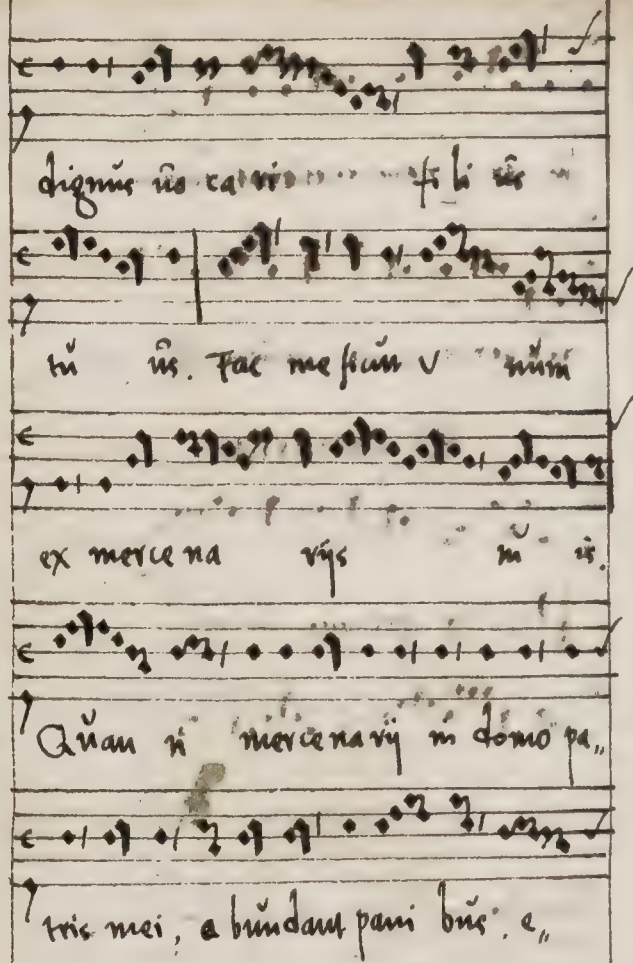 dignus us ca ri fi li us
tu us. Fac me sicut V num
ex merce na rijs m is.
Quan n mercenarij in domo pa„
tris mei, a bundant pani bus, e„